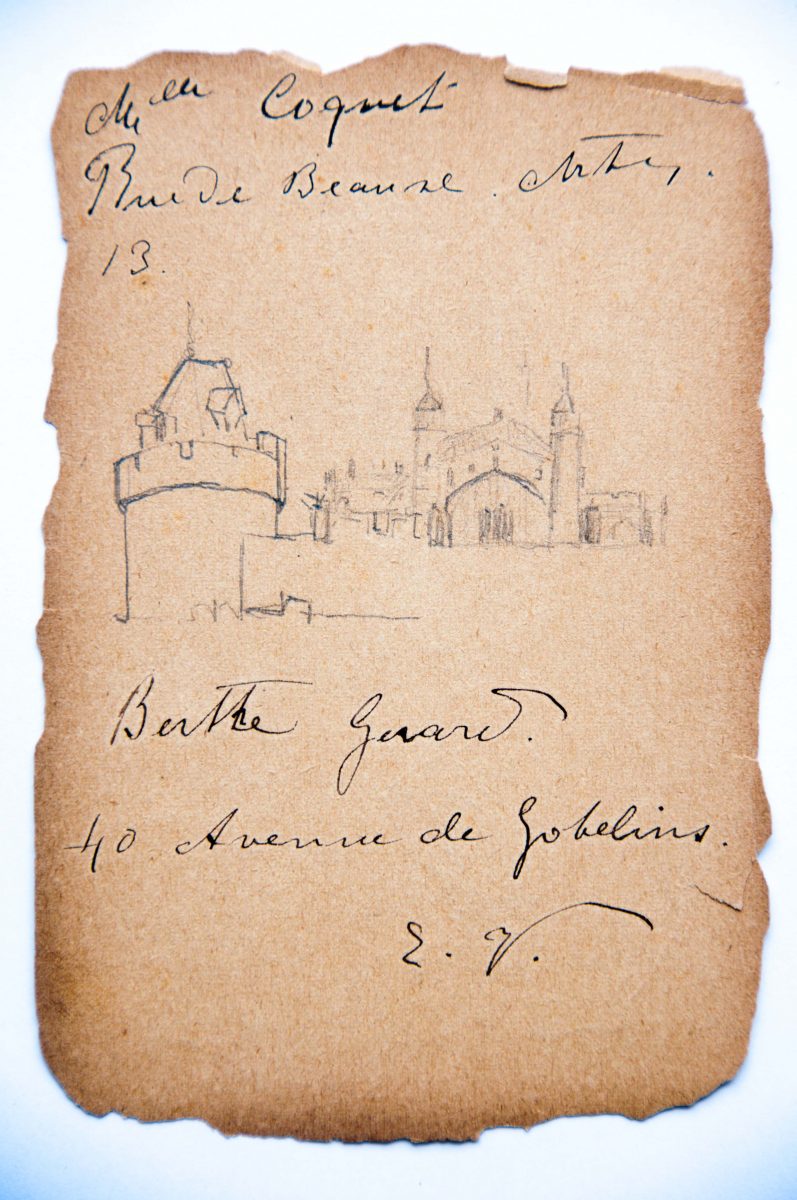 Mlle Coquet
Rue de Beause. Arts,.
13.
Berthe Gerard.
40 Avenue de Gobelins.
E. V.